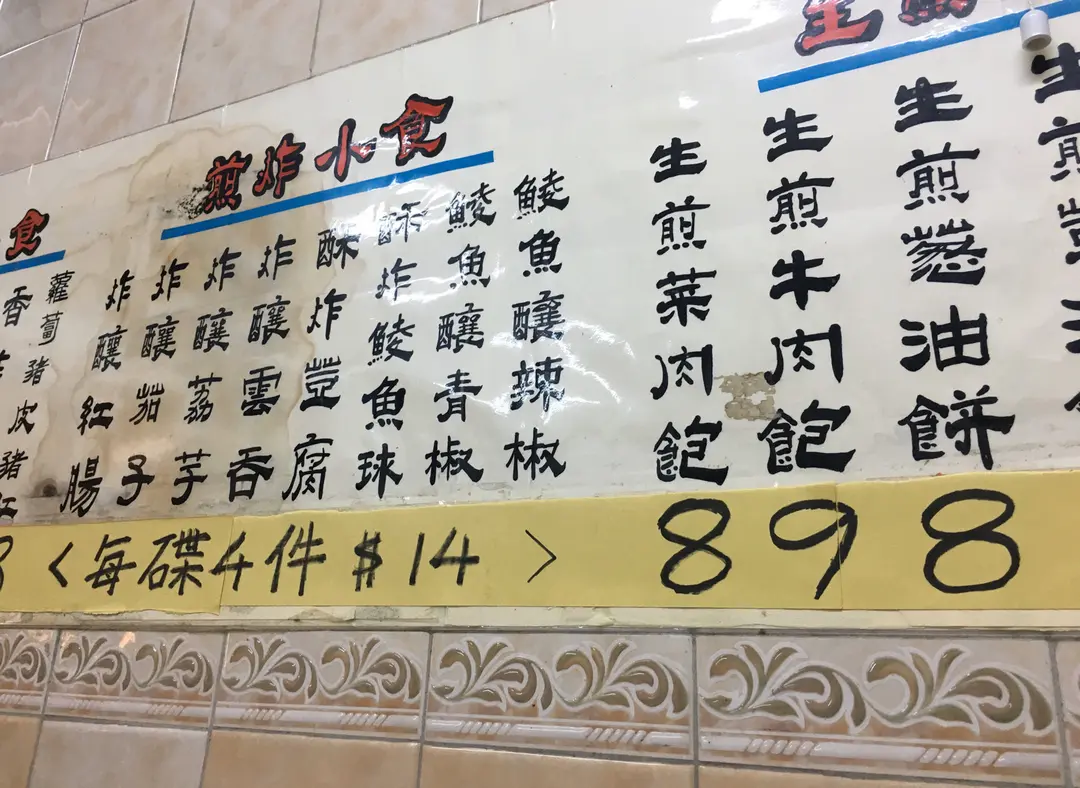 食
香
豬
紅
蘿蔔豬皮
煎炸小食
炸釀紅腸
炸釀茄子
炸釀荔芋
炸釀雲吞
酥炸豈腐
酥炸鯪魚球
鯪魚釀青椒
鯪魚釀辣椒
<每碟4件$14>
生煎
生煎菜肉飽
8
生煎牛肉飽
9
生煎葱油餅
8
生煎豈